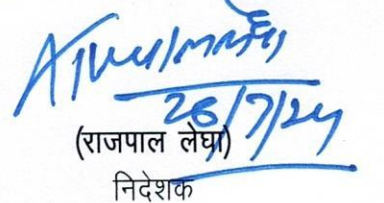 26/7/24
(राजपाल लेघा)
निदेशक